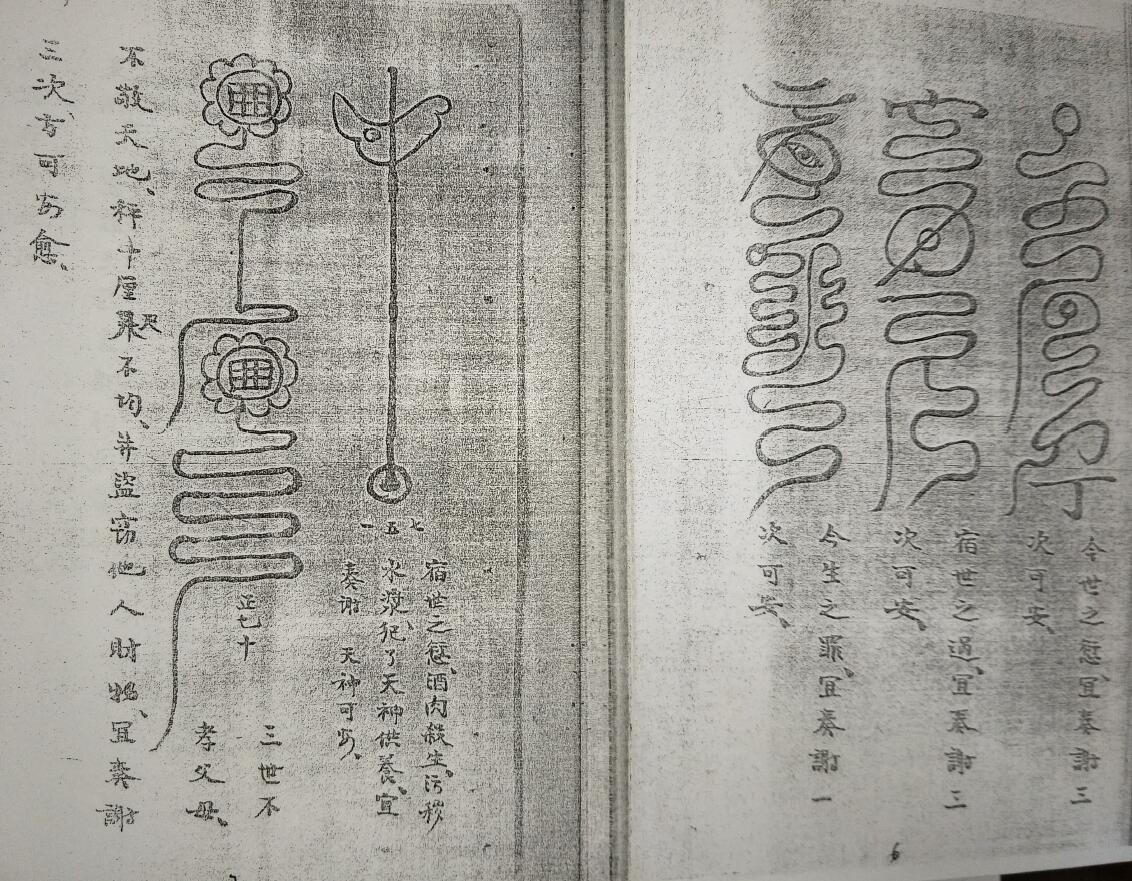 今世之愆、宜奏謝三
次可安、
宿世之過、宜奏謝三
次可安、
今生之罪、宜奏謝一
次可安、
6
七
五
一
宿世之愆、酒肉殺生、污穢
水漿犯了天神供養、宜
奏謝 天神可安、
正七十
三世不
孝父母、
不敬天地、秤斗厘尺不均、并盜窃他人財物、宜奏謝
三次、方可安愈、